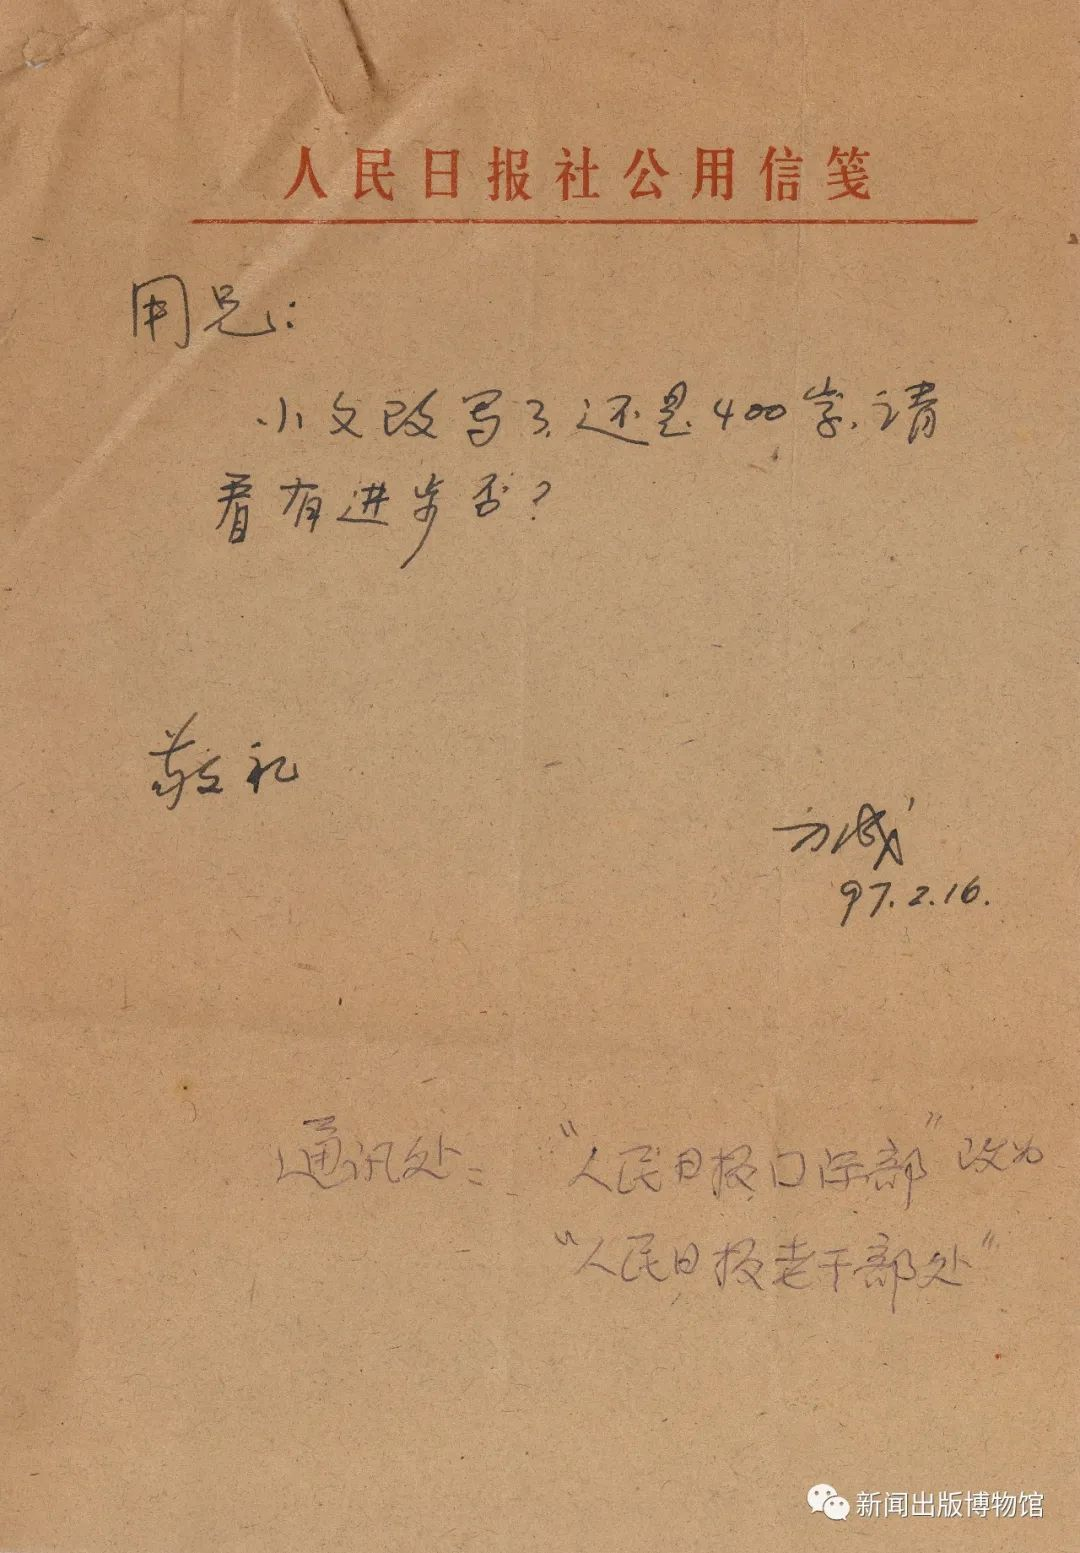 人民日报社公用信笺
用兄：
小文改写了，还是400字，请
看有进步否？
敬礼
方成
97.2.16.
通讯处：“人民日报国际部”改为
“人民日报老干部处”
新闻出版博物馆